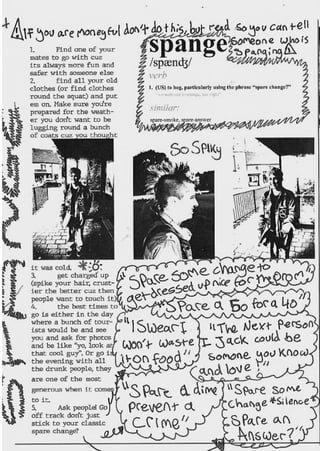 ⚠If you are moneyful don't do this, but read so you can tell
someone who is
spanging⚠
1. Find one of your
mates to go with cuz
its always more fun and
safer with someone else
2. find all your old
clothes (or find clothes
round the squat) and put
em on. Make sure you're
prepared for the weath-
er you don't want to be
lugging round a bunch
of coats cuz you thought
spange
/spændʒ/
verb
1. (US) to beg, particularly using the phrase "spare change?"
similar:
spare-smoke, spare-answer
SO SPIKY
it was cold.
3. get charged up
(spike your hair, crust-
ier the better cuz then
people want to touch it)
4. the best times to
go is either in the day
where a bunch of tour-
ists would be and see
you and ask for photos
and be like "yo, look at
that cool guy". Or go in
the evening with all
the drunk people, they
are one of the most
generous when it comes
to it.
5. Ask people! Go
off track don't just
stick to your classic
spare change?
"Spare some change to
get dressed up nice for the prom"
"Spare a 50 for a 40"
"I swear I
won't waste
it on food"
"The Next person
I Jack could be
somone you know
and love"
"Spare a dime
prevent a
crime"
"Spare some
change *silence*
Spare an
Answer?"